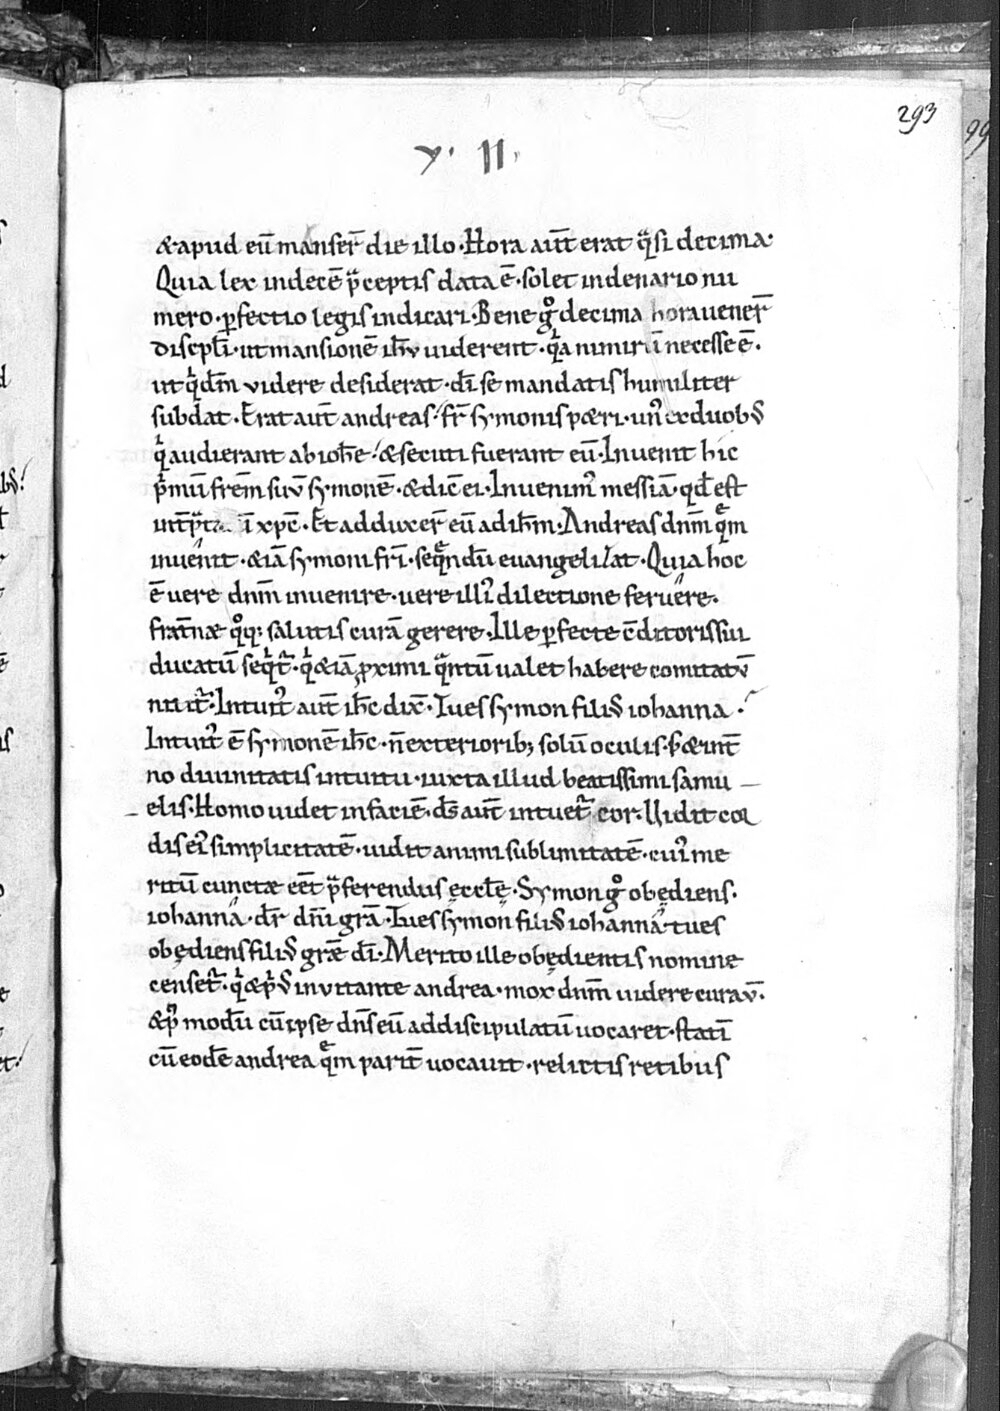 293
99
y· II·
&apud eū manser̄ die illo· Hora aut̄ erat q̄si decima·
Quia lex indecē p̄ceptis data ē· solet indenario nu
mero· ꝑfectio legis indicari· Bene gͦ decima hora uener̄
discipl̄i· ut mansionē ih̄v viderent· qͣa nimirū necesse ē·
ut qͥ dm̄ videre desiderat· dī se mandatis humiliter
subdat· Erat aut̄ andreas fr̄ symonis pœri· un᾽ ex duobꝰ
qͥ audierant ab ioh̄e· & secuti fuerant eū· Inuenit hic
pͥmū frēm suū symonē· & dic̄ ei· Inuenim᾽ messiā qd̄ est
int̄p̄ta xpc̄· Et adduxer̄ eū ad ih̄m· Andreas dnm̄ qͣm
inuenit· & iā symoni fr̄i· seqͣndū euangelizat· Quia hoc
ē vere dnm̄ inuenire· uere illi᾽ dilectione feruere·
frat̄næ qͦq; salutis curā gerere· Ille ꝑfecte c̄ditoris sui
ducatū seqͥt᷑· qͥ &iā ꝓximi qͣntū ualet habere comitatū
nitit᷑· Intuit᾽ aut̄ ih̄c dix̄· Tu es symon filiꝰ iohanna·
Intuit᾽ ē symonē ih̄c· n̄ exteriorib; solū oculis· s; & int̄
no diuinitatis intuitu· iuxta illud beatissimi samu
elis· Homo uidet in faciē· ds̄ aut̄ intuet᷑ cor· Uidit cor
dis ei᾽ simplicitatē· uidit animi sublimitatē· cui᾽ me
ritū cunctæ eēt p̄ferendus ęcclę· Symon gͦ obędiens·
iohanna· dr̄ dn̄i grā· Tu es symon filiꝰ iohanna· tu es
obędiens filiꝰ grē dī· Merito ille obędientis nomine
censet᷑· qͥ & pͥꝰ inuitante andrea· mox dnm̄ uidere curav̄·
& p᾽ modū cū ipse dn̄s eū ad discipulatū uocaret· statī
cū eodē andrea qͣm parit̄ uocauit· relictis retibus